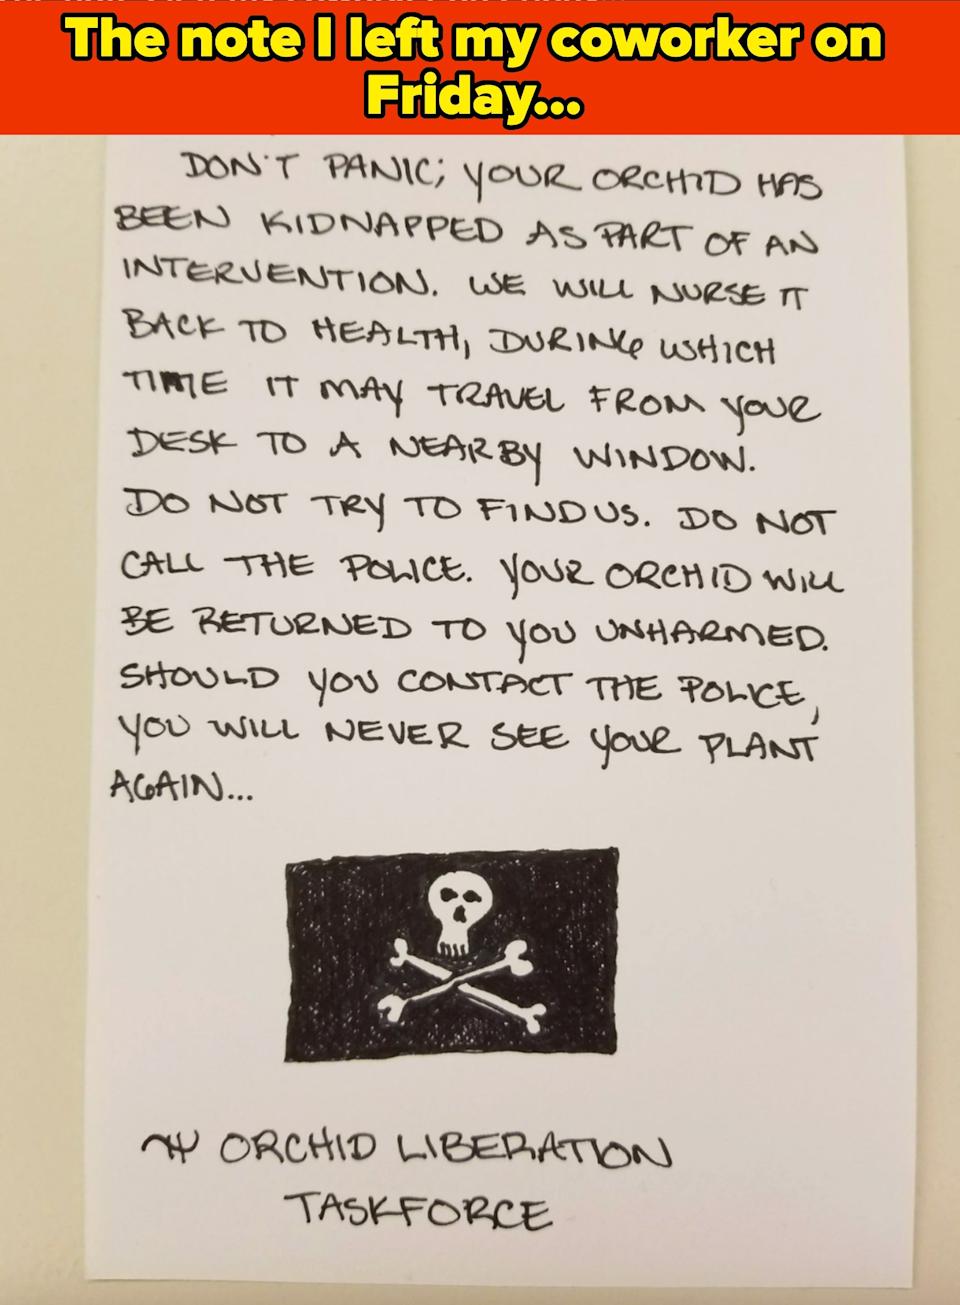 The note I left my coworker on
Friday...
DON'T PANIC; YOUR ORCHID HAS
BEEN KIDNAPPED AS PART OF AN
INTERVENTION. WE WILL NURSE IT
BACK TO HEALTH, DURING WHICH
TIME IT MAY TRAVEL FROM YOUR
DESK TO A NEARBY WINDOW.
DO NOT TRY TO FIND US. DO NOT
CALL THE POLICE. YOUR ORCHID WILL
BE RETURNED TO YOU UNHARMED.
SHOULD YOU CONTACT THE POLICE,
YOU WILL NEVER SEE YOUR PLANT
AGAIN...
ORCHID LIBERATION
TASKFORCE